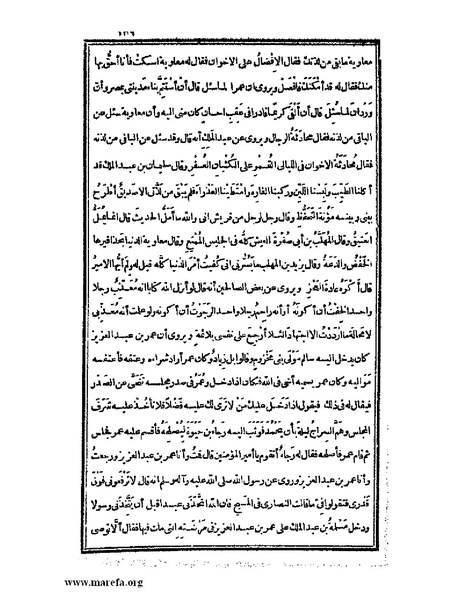 ١٣٦
معاوية ما بقى من لذتك فقال الافضال على الاخوان فقال له معاوية اسكت فأنا أحق بها
منك فقال له قد أمكنك فافعل ويروى ان عمرا لما سئل قال أن أستتم بناء مدينتى بمصر وأن
وردان لما سئل قال أن ألقى كريما قادرا فى عقب احسان كان منى اليه وأن معاوية سئل عن
الباقى من لذته فقال محادثة الرجال ويروى عن عبد الملك أنه قال وقد سئل عن الباقى من لذته
فقال محادثة الاخوان فى الليالى القمر على الكثبان العفر وقال سليمان بن عبد الملك قد
أكلنا الطيب ولبسنا اللين وركبنا الفاره وامتطينا العذراء فلم يبق من لذتى الا صديق أطرح
بينى وبينه مؤنة التحفظ وقال رجل لرجل من قريش انى والله ما أمل الحديث قال انما يمل
العتيق وقال المهلب بن أبى صفرة العيش كله فى الجليس الممتع وقال معاوية الدنيا بحذافيرها
الخفض والدعة وقال يزيد بن المهلب ما يسرنى انى كفيت أمر الدنيا كله قيل له ولم أيها الامير
قال أكره عادة العجز ويروى عن بعض الصالحين أنه قال لو أنزل الله كتابا انه معذب رجلا
واحدا لخفت أن أكونه أو أنه راحم رجلا واحدا لرجوت أن أكونه ولو علمت أنه معذبى
لا محالة ما ازددت الا اجتهادا لئلا أرجع على نفسى بلائمة ويروى أن عمر بن عبد العزيز
كان يدخل اليه سالم مولى بنى مخزوم وقالوا بل زياد وكان عمر أراد شراءه وعتقه فأعتقه
مواليه وكان عمر يسميه أخى فى الله فكان اذا دخل وعمر فى صدر مجلسه تنحى عن الصدر
فيقال له فى ذلك فيقول اذا دخل عليك من لا ترى لك عليه فضلا فلا تأخذ عليه شرف
المجلس وهم السراج ليلة بأن يخمد فوثب اليه رجاء بن حيوة ليصلحه فأقسم عليه عمر فجلس
ثم قام عمر فأصلحه فقال له رجاء أتقوم يا أمير المؤمنين قال قمت وأنا عمر بن عبد العزيز ورجعت
وأنا عمر بن عبد العزيز وروى عن رسول الله صلى الله عليه وآله وسلم انه قال لا ترفعونى فوق
قدرى فتقولوا فى ما قالت النصارى فى المسيح فان الله اتخذنى عبدا قبل أن يتخذنى رسولا
ودخل مسلمة بن عبد الملك على عمر بن عبد العزيز فى مرضته التى مات فيها فقال ألا توصى
www.marefa.org